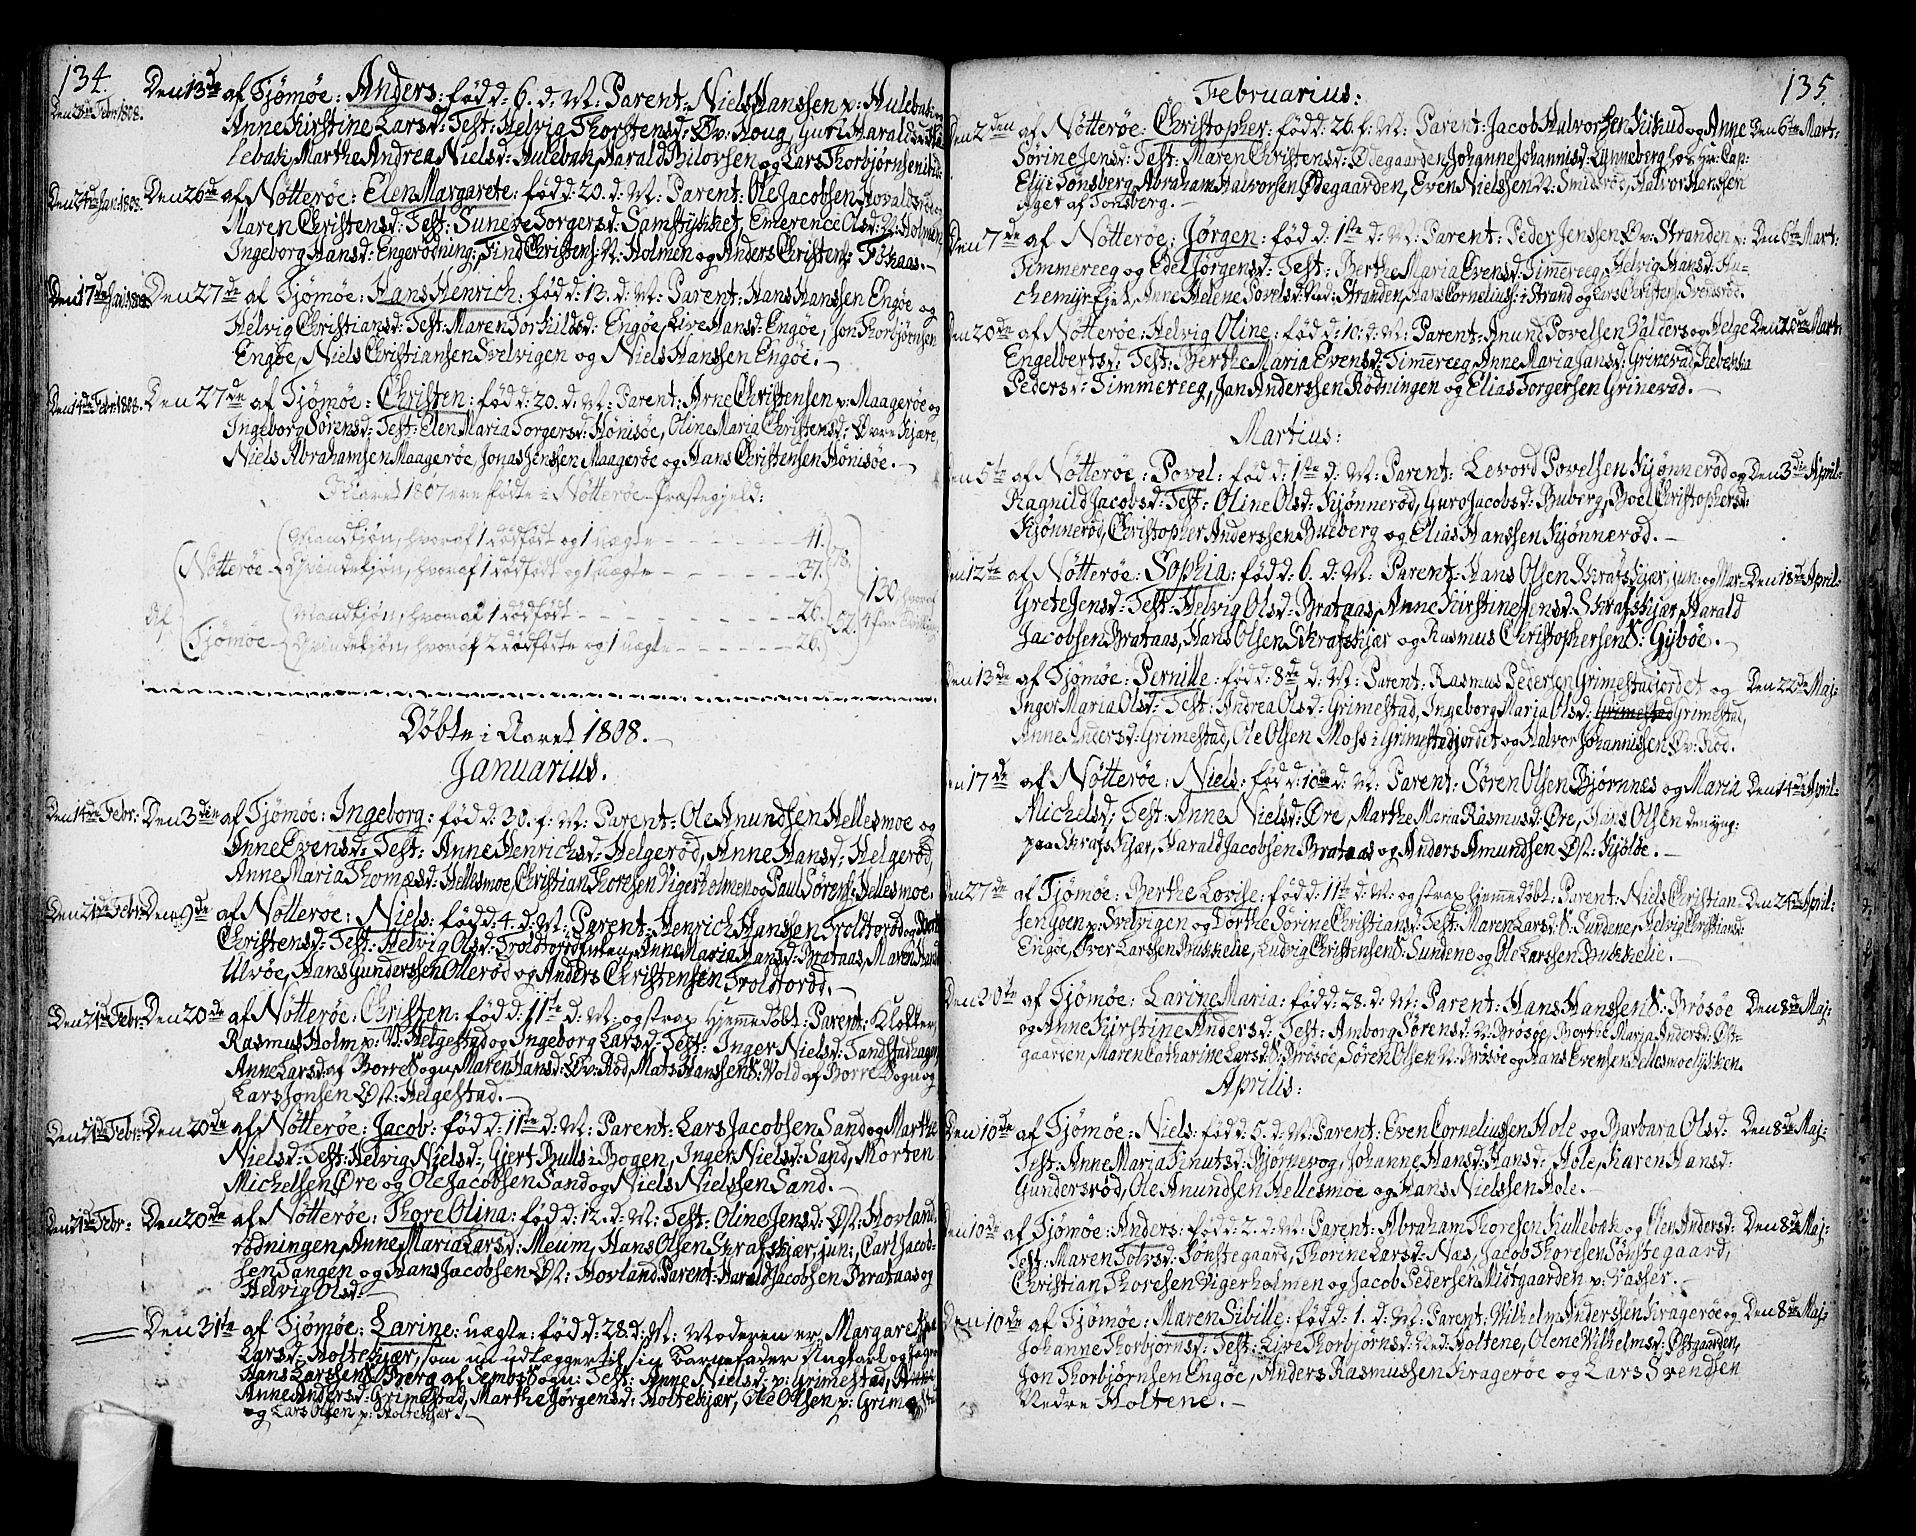 134.
Den 13de af Tjömöe: Anders: föd d: 6. d: M: Parent: Niels Hanssen p: Hulebak og
Den 28de Febr: 1808.
Anne Kirstine Larsd: Test: Helvig Thorstensd: Øv: Houg, Guri Haraldsd: Hu-
lebak, Marthe Andrea Nielsd: Hulebak, Harald Nilossen og Lars Thorbjørnsen ibid:
Den 24de Jan: 1808. Den 26de af Nötteröe: Elen Margarete: föd d: 20. d: M: Parent: Ole Jacobsen Hovaldsröd og
Maren Christensd: Test: Sunere Torgersd: Samstykket, Emerence Olsd: N: Holmen,
Ingeborg Hansd: Engerödning, Find Christens: N: Holmen og Anders Christens: Fökaas. —
Den 17de Jan: 1808. Den 27de af Tjömöe: Hans Henrich: föd d: 13. d: M: Parent: Hans Hanssen Engöe og
Helvig Christiansd: Test: Maren Torkildsd: Engöe, Live Hansd: Engöe, Jon Thorbjørnsen
Engöe, Niels Christiansen Svelvigen og Niels Hanssen Engöe. —
Den 14de Febr: 1808. Den 27de af Tjömöe: Christen: föd d: 20. d: M: Parent: Arne Christensen p: Maageröe og
Ingeborg Sörensd: Test: Elen Maria Torgersd: Hönisöe, Oline Maria Christensd: Øvre Kjære,
Niels Abrahamsen Maageröe, Jonas Jenssen Maageröe og Hans Christensen Hönisöe. —
I Aaret 1807 ere födte i Nötteröe Præstegjeld:
af Nötteröe Mandkjön, hvoraf 1 dödfödt og 1 uægte - - - - - 41.
Qvindekjön, hvoraf 1 dödfödt og 1 uægte - - - - - 37. 78.
130. hvoraf
4 Par Tvillinger
Tjömöe Mandkjön, hvoraf 1 dödfödt - - - - - 26. 52.
Qvindekjön, hvoraf 2 dödfödte og 1 uægte - - - - - 26.
Döbte i Aaret 1808. —
Januarius.
Den 14de Febr: Den 3die af Tjömöe: Ingeborg: föd d: 30. f: M: Parent: Ole Anundsen Hellesmoe og
Anne Evensd: Test: Anne Henrichsd: Helgeröd, Anne Hansd: Helgeröd,
Anne Maria Thomæsd: Hellesmoe, Christian Thoresen Vigerholmen og Paul Sörens: Hellesmoe.
Den 21de Febr: Den 9de af Nötteröe: Niels: föd d: 4. d: M: Parent: Henrich Hanssen Troldtord og
Christensd: Test: Helvig Olsd: Troldtord, Anne Maria Hansd: Brataas, Maren
Ulvöe, Hans Gunderssen Olleröd og Anders Christensen Troldtord. —
Den 21de Febr: Den 20de af Nötteröe: Christen: föd d: 11te d: M: og strax Hjemmedöbt: Parent: Klokker
Rasmus Holm p: N: Helgestad og Ingeborg Larsd: Test: Inger Nielsd: Tandstadhagen,
Anne Larsd: af Borre Sogn, Maren Hansd: Øv: Röd, Mats Hanssen S: Vold af Borre Sogn og
Lars Jonsen Øst: Helgestad. —
Den 21de Febr: Den 20de af Nötteröe: Jacob: föd d: 11te d: M: Parent: Lars Jacobsen Sand og Marthe
Nielsd: Test: Helvig Nielsd: Gjert Bulls i Bogen, Inger Nielsd: Sand, Morten
Michelsen Øre og Ole Jacobsen Sand og Niels Nielssen Sand. —
Den 21de Febr: Den 20de af Nötteröe: Thore Olina: föd d: 12. d: M: Test: Oline Jensd: Øst: Hovland-
rödningen, Anne Maria Larsd: Meum, Hans Olsen Skrafskjær, jun:, Carl Jacob-
sen Tangen og Hans Jacobsen Øst: Hovland. Parent: Harald Jacobsen Brataas og
Helvig Olsd: —
Den 31te af Tjömöe: Larine: uægte: föd d: 28. d: M: Moderen er Margarethe
Larsd: Holtekjær, som nu udlægger til sin Barnefader Ungkarl og
Hans Larssen Berg af Sems Sogn: Test: Anne Nielsd: p: Grimestad,
Anne Andersd: Grimestad, Marthe Jörgensd: Holtekjær, Ole Olsen p: Grimestad
og Lars Olsen p: Holtekjær. —
135.
Februarius:
Den 2den af Nötteröe: Christopher: föd d: 26. f: M: Parent: Jacob Halvorssen Kikud og Anne Den 6te Mart:
Sörine Jensd: Test: Maren Christensd: Ødegaarden, Johanne Johannisd: Lynneberg hos Hr: Cap:
Elye Tönsberg, Abraham Halvorsen Ødegaarden, Even Nielssen N: Smideröd, Halvor Hanssen
Aget af Tönsberg. —
Den 7de af Nötteröe: Jörgen: föd d: 1ste d: M: Parent: Peder Jenssen Øv: Stranden p: Den 6te Mart:
Timmereeg og Edel Jörgensd: Test: Berthe Maria Evensd: Timereeg, Helvig Hansd: Hu-
chemyrfjel, Anne Helene Povelsd: Ned: Stranden, Hans Corneliuss: i Strand og Lars Christens: Svensröd.
Den 20de af Nötteröe: Helvig Oline: föd d: 10: d: M: Parent: Anund Povelsen Valders og Helge Den 20de Mart:
Engelbertsd: Test: Berthe Maria Evensd: Timereeg, Anne Maria Jansd: Grineröd, Rebekka
Pedersd: Timmereeg, Jan Anderssen Rödningen og Elias Torgersen Grineröd. —
Martius:
Den 5te af Nötteröe: Povel: föd d: 1ste d: M: Parent: Levord Povelsen Kjönneröd og Den 3die April:
Ragnild Jacobsd: Test: Oline Olsd: Kjönneröd, Guro Jacobsd: Buberg, Boel Christophersd:
Kjönneröd, Christopher Anderssen Bueberg og Elias Hanssen Kjönneröd. —
Den 12te af Nötteröe: Sophia: föd d: 6. d: M: Parent: Hans Olsen Skrafskjær, jun: og Mar- Den 18de April:
Grete Jensd: Test: Helvig Olsd: Brataas, Anne Kirstine Jensd: Skrafskjær, Harald
Jacobsen Brataas, Hans Olsen Skrafskjær og Rasmus Christophersen S: Gyböe. —
Den 13de af Tjömöe: Pernille: föd d: 8de d: M: Parent: Rasmus Pedersen Grimestadjordet og Den 22de Maj:
Inger Maria Olsd: Test: Andrea Olsd: Grimestad, Ingeborg Maria Olsd: Grimestad Grimestad,
Anne Andersd: Grimestad, Ole Olsen Moss i Grimestadjordet og Halvor Johannissen Øv: Röd.
Den 17de af Nötteröe: Niels: föd d: 10de d: M: Parent: Sören Olsen Bjørnnes og Maria Den 14de April:
Michelsd: Test: Anne Nielsd: Øre, Marthe Maria Rasmusd: Øre, Hans Olsen den yng:
paa Skrafskjær, Harald Jacobsen Brataas og Anders Amundsen Øst: Kjölöe. —
Den 27de af Tjömöe: Berthe Lovise: föd d: 11te d: M: og strax hjemmedöbt: Parent: Niels Christian- Den 24de April:
sen Goen p: Svelvigen og Dorthe Sörine Christiansd: Test: Maren Larsd: S: Sundene, Helvig Christiansd:
Engöe, Iver Larssen Bukkelie, Ludvig Christensen S: Sundene og Ole Larssen Bukkelie. —
Den 20de af Tjömöe: Larine Maria: föd d: 28. d: M: Parent: Hans Hanssen S: Brösöe Den 8de Maj:
og Anne Kirstine Andersd: Test: Amborg Sörensd: N: Brösöe, Berthe Maria Andersd: Øst-
gaarden, Maren Catharine Larsd: S: Brösöe, Sören Olsen N: Brösöe og Hans Evensen Hellesmoelykken.
Aprilis:
Den 10de af Tjömöe: Niels: föd d: 5. d: M: Parent: Even Corneliussen Hole og Barbara Olsd: Den 8de Maj:
Test: Anne Maria Knutsd: Bjørnevog, Johanne Hansd: Hansd: Hole, Karen Hansd:
Gundersröd, Ole Anundsen Hellesmoe og Hans Nielssen Hole. —
Den 10de af Tjömöe: Anders: föd d: 2. d: M: Parent: Abraham Thoresen Kullebak og Elen Andersd: Den 8de Maj:
Test: Maren Tolvsd: Sönstegaard, Thorine Larsd: Næs, Jacob Thoresen Sönstegaard,
Christian Thoresen Vigerholmen og Jacob Pedersen Midtgaarden p: Vasser. —
Den 10de af Tjömöe: Maren Sibille: föd d: 1. d: M: Parent: Wilhelm Anderssen Krageröe og Den 8de Maj:
Johanne Thorbjørnsd: Test: Live Thorbjørnsd: Ned: Holtene, Olene Wilhelmsd: Østgaarden,
Jon Thorbjørnsen Engöe, Anders Rasmussen Krageröe og Lars Svendsen
Nedre Holtene. —